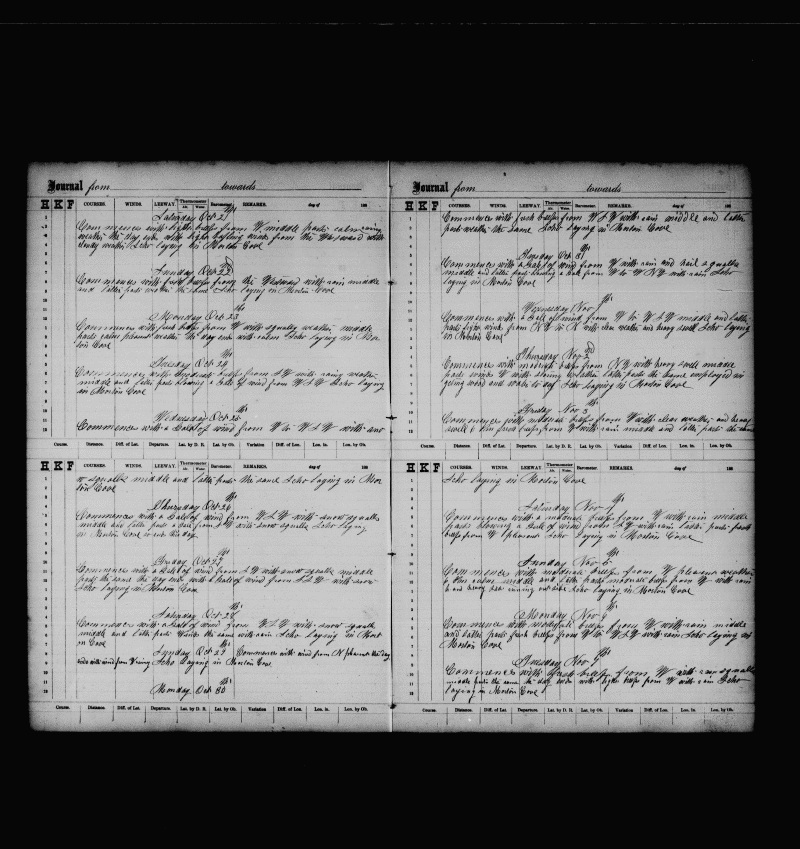 Journal from towards
H K F COURSES. WINDS. LEEWAY. Thermometer Air. Water. Barometer. REMARKS. day of 186
Saturday Oct 21st
Commences with light breeze from W middle part calm rainy
weather the day ends with light baffling winds from the Westward with
weather Scho laying in Morton Cove
Sunday Oct 22d
Commences with fresh breeze from the Westward with rain middle
and latter parts weather the same Scho laying in Morton Cove
Monday Oct 23
Commences with fresh breeze from W with squally weather middle
parts calm pleasant weather the day ends with calm Scho laying in Mor
ton Cove
Tuesday Oct 24
Commences with moderate breeze from S W with rainy weather
middle and latter parts blowing a Gale of wind from W S W Scho laying
in Morton Cove
Wednesday Oct 25
Commences with a Gale of wind from W to W S W with
Course. Distance. Diff. of Lat. Departure. Lat. by D. R. Lat. by Ob. Variation Diff. of Lon. Lon. in. Lon. by Ob.
H K F COURSES. WINDS. LEEWAY. Thermometer Air. Water. Barometer. REMARKS. day of 186
squalls middle and latter parts the same Scho laying in Mor
ton Cove
Thursday Oct 26
Commences with a Gale of wind from W S W with snow squalls
middle and latter parts a Gale from S W with snow squalls Scho laying
in Morton Cove so ends this day
Friday Oct 27
Commences with a Gale of wind from S W with snow squalls middle
parts the same the day ends with a Gale of wind from S S W with snow
Scho laying in Morton Cove
Saturday Oct 28
Commences with a Gale of wind from W S W with snow squalls
middle and latter parts Winds the same with rain Scho laying in Mort
on Cove
Sunday Oct 29 Commences with wind from N pleasant the day
ends with wind from W Scho laying in Morton Cove
Monday Oct 30
Course. Distance. Diff. of Lat. Departure. Lat. by D. R. Lat. by Ob. Variation Diff. of Lon. Lon. in. Lon. by Ob.
Journal from towards
H K F COURSES. WINDS. LEEWAY. Thermometer Air. Water. Barometer. REMARKS. day of 186
Commences with fresh breeze from W S W with rain middle and latter
parts weather the same Scho laying in Morton Cove
Tuesday Oct 31
Commences with a Gale of wind from W with rain and hail squalls
middle and latter parts blowing a Gale from W to W N W with rain Scho
laying in Morton Cove
Wednesday Nov 1st
Commences with a Gale of wind from W to W S W middle and latter
parts light winds from N W to N with clear weather and heavy swell Scho laying
in Morton Cove
Thursday Nov 2d
Commences with moderate breeze from N W with heavy swell middle
parts winds W with strong latter parts the same employed in
getting wood and water to day Scho laying in Morton Cove
Friday Nov 3
Commences with moderate breeze from W with clear weather and heavy
swell from W with rain middle and latter parts the same
Course. Distance. Diff. of Lat. Departure. Lat. by D. R. Lat. by Ob. Variation Diff. of Lon. Lon. in. Lon. by Ob.
H K F COURSES. WINDS. LEEWAY. Thermometer Air. Water. Barometer. REMARKS. day of 186
Scho laying in Morton Cove
Saturday Nov 4
Commences with a moderate breeze from W with rain middle
parts blowing a Gale of wind from S W with rain latter parts fresh
breeze from W pleasant Scho laying in Morton Cove
Sunday Nov 5
Commences with moderate breeze from W pleasant weather
calm middle and latter parts moderate breeze from W with rain
and heavy sea running out side Scho laying in Morton Cove
Monday Nov 6
Commences with moderate breeze from W with rain middle
and latter parts fresh breeze from W to W S W with rain Scho laying in
Morton Cove
Tuesday Nov 7
Commences with fresh breeze from W with rain squalls
middle parts the same the day ends with light breeze from W with rain Scho
laying in Morton Cove
Course. Distance. Diff. of Lat. Departure. Lat. by D. R. Lat. by Ob. Variation Diff. of Lon. Lon. in. Lon. by Ob.